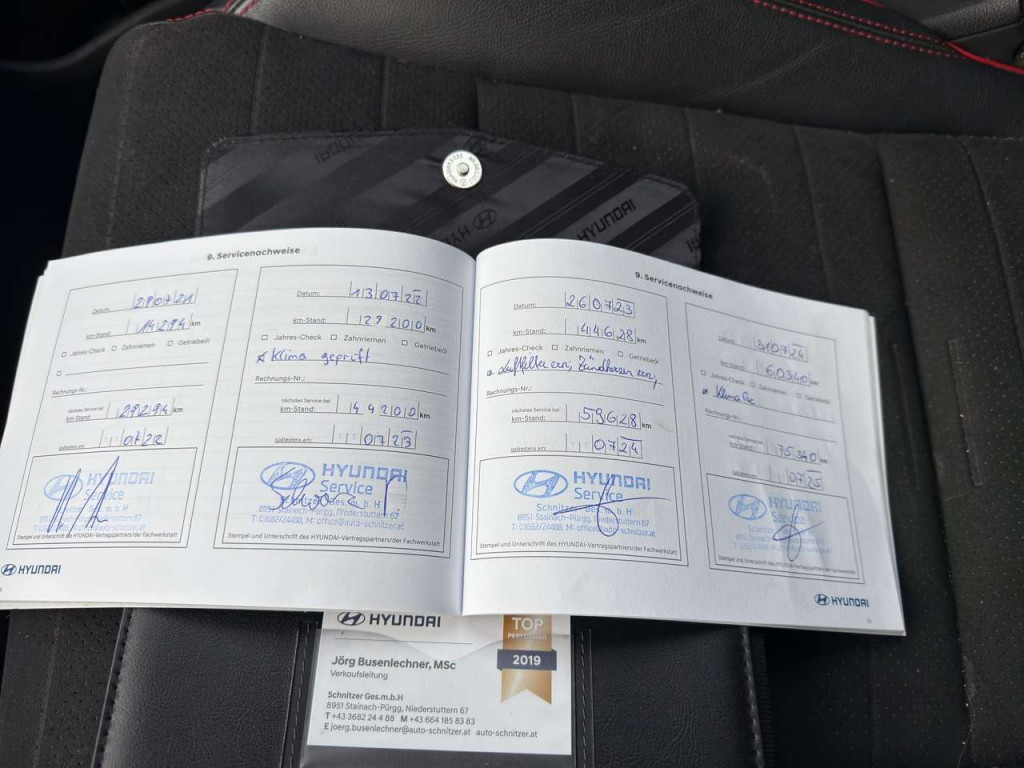 HYUNDAI
9. Servicenachweise
Datum: 290721
km-Stand: 14294 km
Jahres-Check Zahnriemen Getriebeöl
Rechnungs-Nr.:
nächstes Service bei
km-Stand: 29294 km
spätestens am: 0722
HYUNDAI
Service
Stempel und Unterschrift des HYUNDAI-Vertragspartners/der Fachwerkstatt
Datum: 130722
km-Stand: 29200 km
Jahres-Check Zahnriemen Getriebeöl
Klima geprüft
Rechnungs-Nr.:
nächstes Service bei
km-Stand: 44200 km
spätestens am: 0723
HYUNDAI
Service
Schnitzer Ges.m.b.H
8951 Stainach-Pürgg, Niederstuttern 67
T: 03682/24488, M: office@auto-schnitzer.at
Stempel und Unterschrift des HYUNDAI-Vertragspartners/der Fachwerkstatt
HYUNDAI
9. Servicenachweise
Datum: 260723
km-Stand: 44628 km
Jahres-Check Zahnriemen Getriebeöl
Rechnungs-Nr.:
nächstes Service bei
km-Stand: 59628 km
spätestens am: 0724
HYUNDAI
Service
Schnitzer Ges.m.b.H
8951 Stainach-Pürgg, Niederstuttern 67
T: 03682/24488, M: office@auto-schnitzer.at
Stempel und Unterschrift des HYUNDAI-Vertragspartners/der Fachwerkstatt
Datum: 310724
km-Stand: 60340 km
Jahres-Check Zahnriemen
Klima
Rechnungs-Nr.:
nächstes Service bei
km-Stand: 75340 km
spätestens am: 0725
HYUNDAI
Service
Stempel und Unterschrift des HYUNDAI-Vertragspartners/der Fachwerkstatt
HYUNDAI
HYUNDAI
TOP
PERFORMER
2019
Jörg Busenlechner, MSc
Verkaufsleitung
Schnitzer Ges.m.b.H
8951 Stainach-Pürgg, Niederstuttern 67
T +43 3682 24 4 88 M +43 664 185 83 83
E joerg.busenlechner@auto-schnitzer.at auto-schnitzer.at